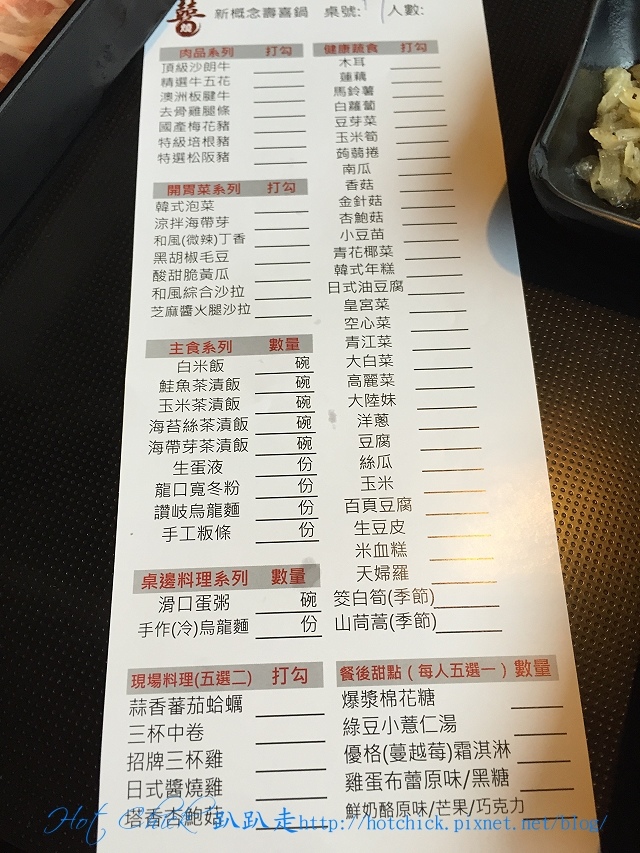 囍燒 新概念壽喜鍋 桌號: 人數:
肉品系列 打勾
頂級沙朗牛
精選牛五花
澳洲板腱牛
去骨雞腿條
國產梅花豬
特級培根豬
特選松阪豬
開胃菜系列 打勾
韓式泡菜
涼拌海帶芽
和風(微辣)丁香
黑胡椒毛豆
酸甜脆黃瓜
和風綜合沙拉
芝麻醬火腿沙拉
主食系列 數量
白米飯 碗
鮭魚茶漬飯 碗
玉米茶漬飯 碗
海苔絲茶漬飯 碗
海帶芽茶漬飯 碗
生蛋液 份
龍口寬冬粉 份
讚岐烏龍麵 份
手工粄條 份
桌邊料理系列 數量
滑口蛋粥 碗
手作(冷)烏龍麵 份
現場料理(五選二) 打勾
蒜香蕃茄蛤蠣
三杯中卷
招牌三杯雞
日式醬燒雞
塔香杏鮑菇
健康蔬食 打勾
木耳
蓮藕
馬鈴薯
白蘿蔔
豆芽菜
玉米筍
蒟蒻捲
南瓜
香菇
金針菇
杏鮑菇
小豆苗
青花椰菜
韓式年糕
日式油豆腐
皇宮菜
空心菜
青江菜
大白菜
高麗菜
大陸妹
洋蔥
豆腐
絲瓜
玉米
百頁豆腐
生豆皮
米血糕
天婦羅
筊白筍(季節)
山茼蒿(季節)
餐後甜點（每人五選一）數量
爆漿棉花糖
綠豆小薏仁湯
優格(蔓越莓)霜淇淋
雞蛋布蕾原味/黑糖
鮮奶酪原味/芒果/巧克力
Hot Chick 趴趴走http://hotchick.pixnet.net/blog/